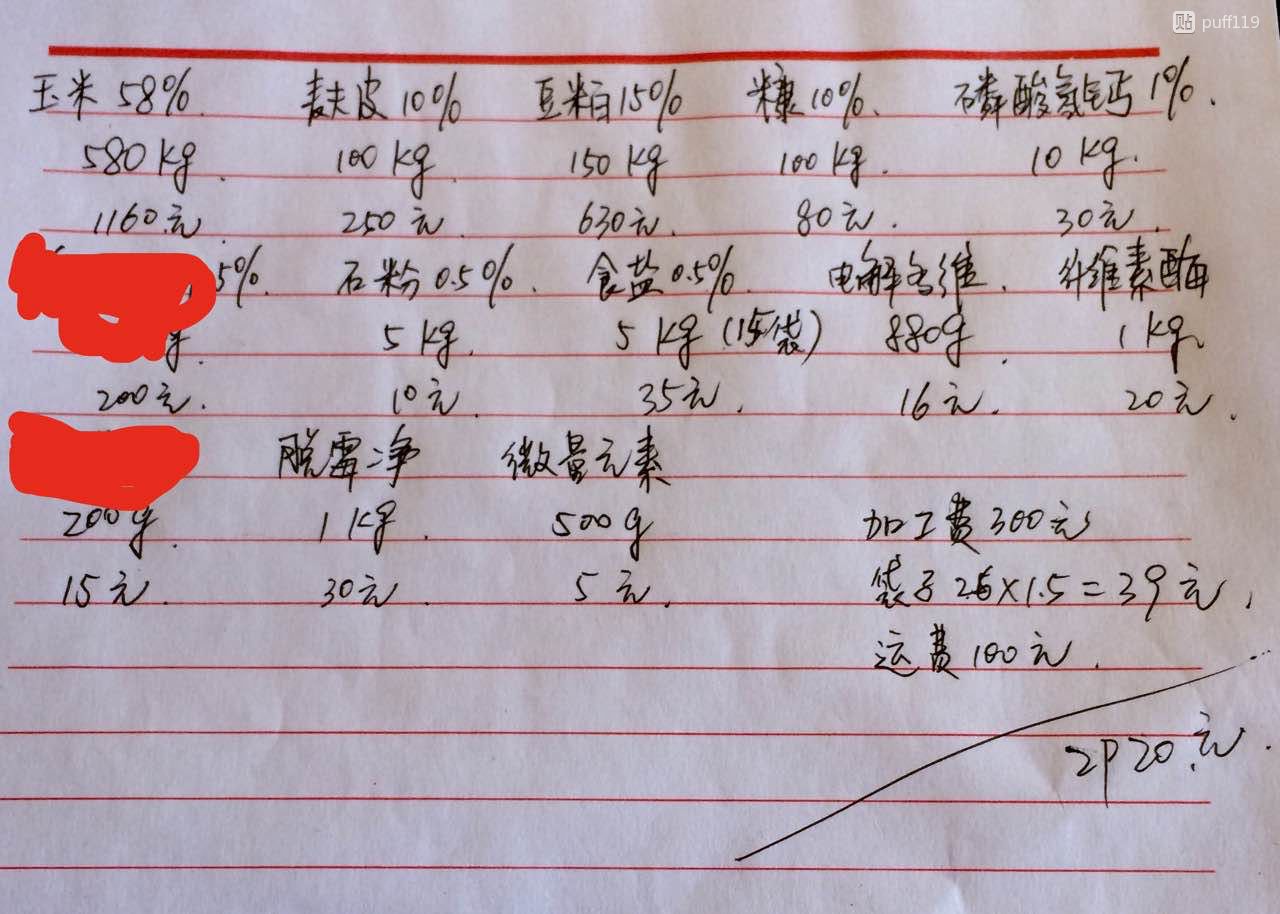 贴 puff119
玉米 58%. 麸皮 10% 豆粕 15% 糠 10%. 磷酸氢钙 1%.
580 kg. 100 kg. 150 kg 100 kg. 10 kg.
1160元. 250元. 630元. 80元. 30元.
5%. 石粉 0.5%. 食盐 0.5%. 电解多维. 纤维素酶
g. 5 kg. 5 kg (15袋) 880g. 1 kg.
200元. 10元. 35元. 16元. 20元.
脱霉净 微量元素
200g. 1 kg. 500g 加工费 300元
15元. 30元. 5元. 袋子 26×1.5=39元.
运费 100元.
2920元.